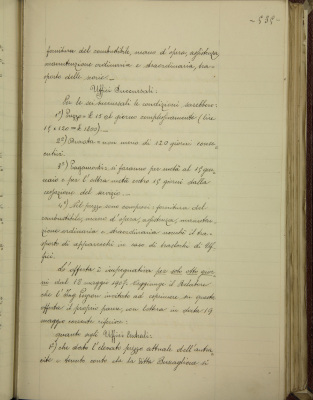 - 585 -
fornitura del combustibile, mano d'opera, assistenza,
manutenzione ordinaria e straordinaria, tra-
sporto delle scorie. -
Uffici Succursali.
Per le sei succursali le condizioni sarebbero:
1°) Prezzo £ 15 al giorno complessivamente (lire
15 x 120 = £ 1800). -
2°) Durata: non meno di 120 giorni conse-
cutivi.
3°) Pagamenti: si faranno per metà al 15 gen-
naio e per l'altra metà entro 15 giorni dalla
cessazione del servizio. -
4°) Nel prezzo sono compresi: fornitura del
combustibile, mano d'opera, assistenza, manuten-
zione ordinaria e straordinaria nonché il tra-
sporto di apparecchi in caso di traslochi di Uf-
fici.
L'offerta è impegnativa per otto gior-
ni dal 18 maggio 1907. Soggiunge il Relatore
che l'Ing. invitato ad esprimere su questa
offerta il proprio parere, con lettera in data 19
maggio corrente riferisce:
quanto agli Uffici Centrali:
1°) che dato l'elevato prezzo attuale dell'antra-
cite e tenuto conto che la Ditta si